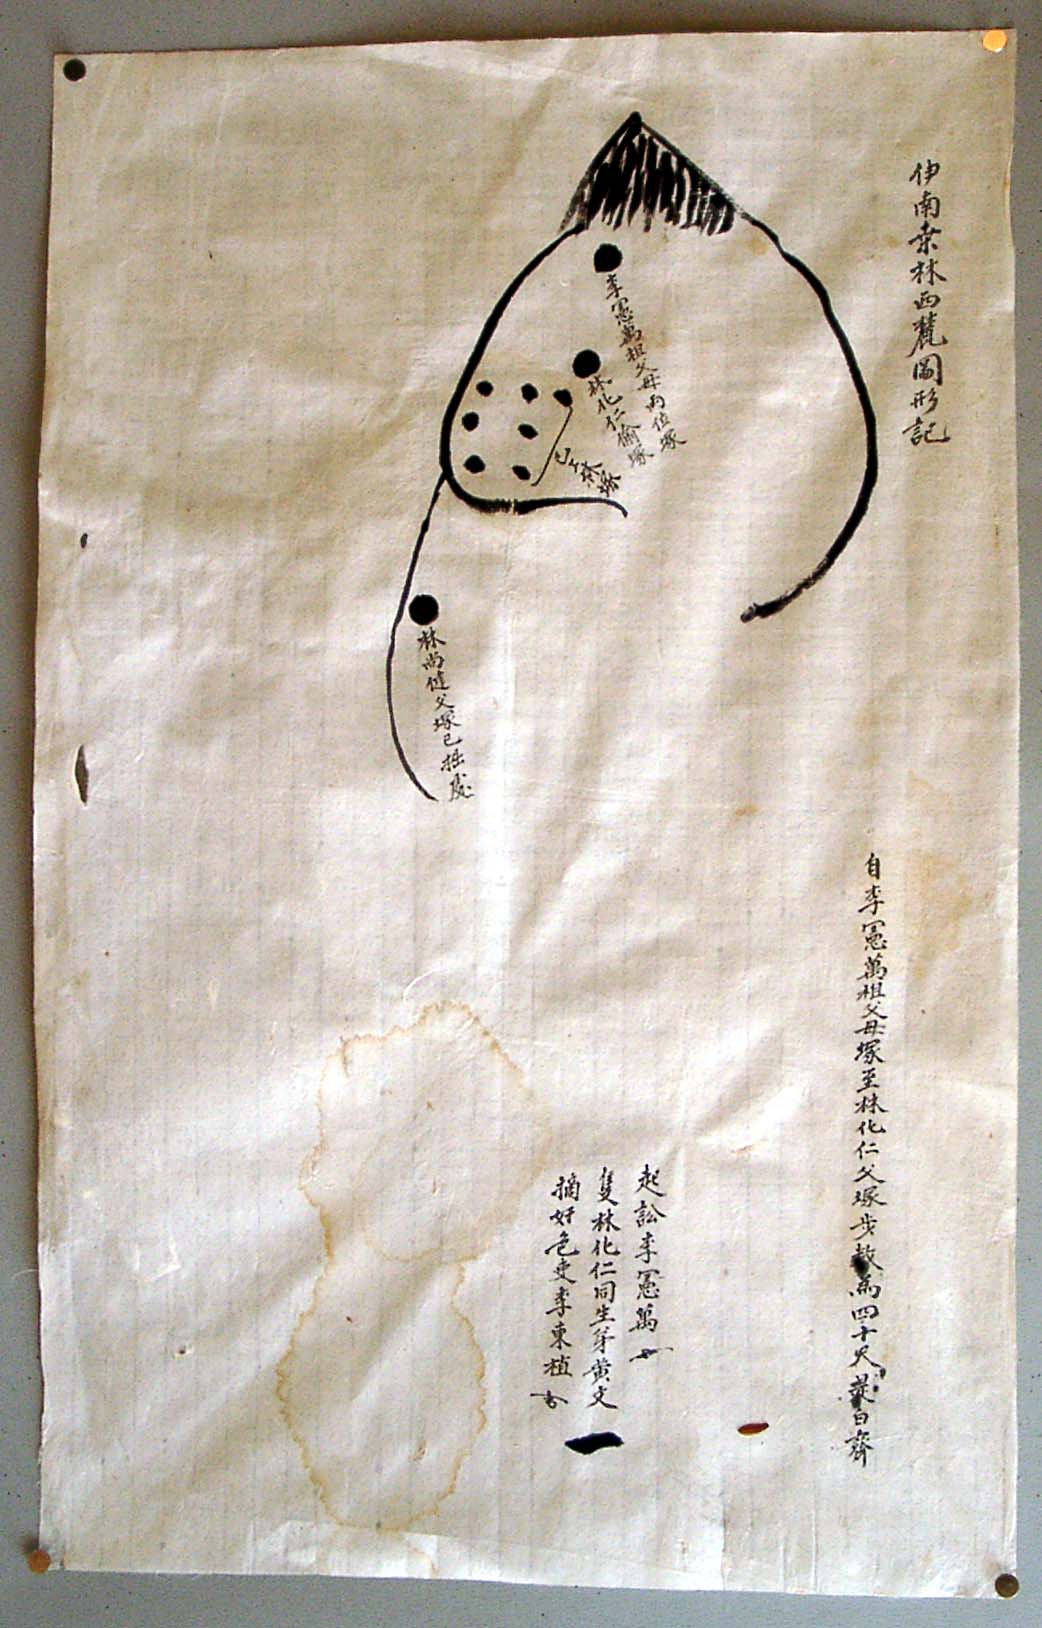 伊南桒林西麓圖形記
李憲萬祖父母両位塚
林化仁偷塚
已上林塚
林尚健父塚已掘處
自李憲萬祖父母塚至林化仁父塚步数爲四十尺
起訟李憲萬
隻林化仁同生弟黄文
摘奸色吏李東植